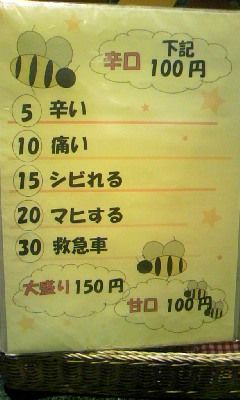 辛口 下記
100円
5 辛い
10 痛い
15 シビれる
20 マヒする
30 救急車
大盛り 150円
甘口 100円